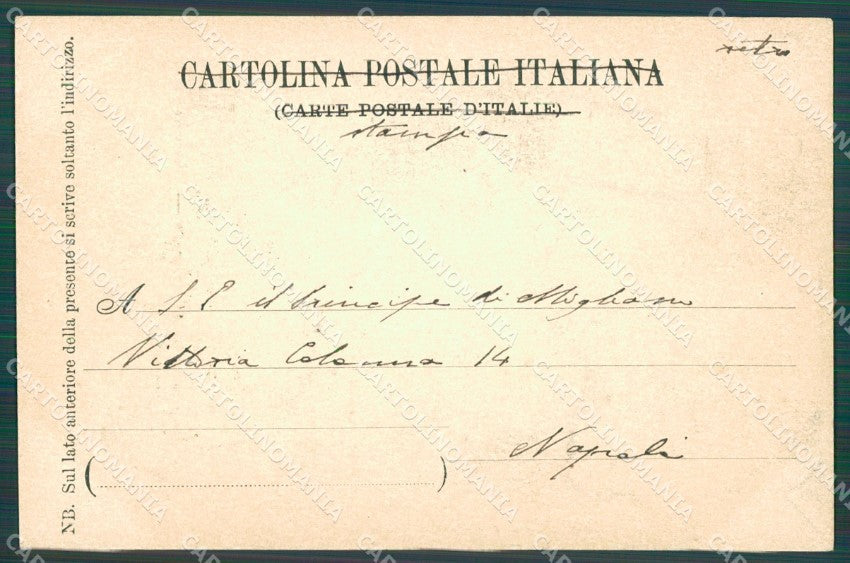 retro
CARTOLINA POSTALE ITALIANA
(CARTE POSTALE D'ITALIE)
stampa
A S. E il Principe di Migliano
Vittoria Colonna 14
Napoli
NB. Sul lato anteriore della presente si scrive soltanto l'indirizzo.
CARTOLINOMANIA